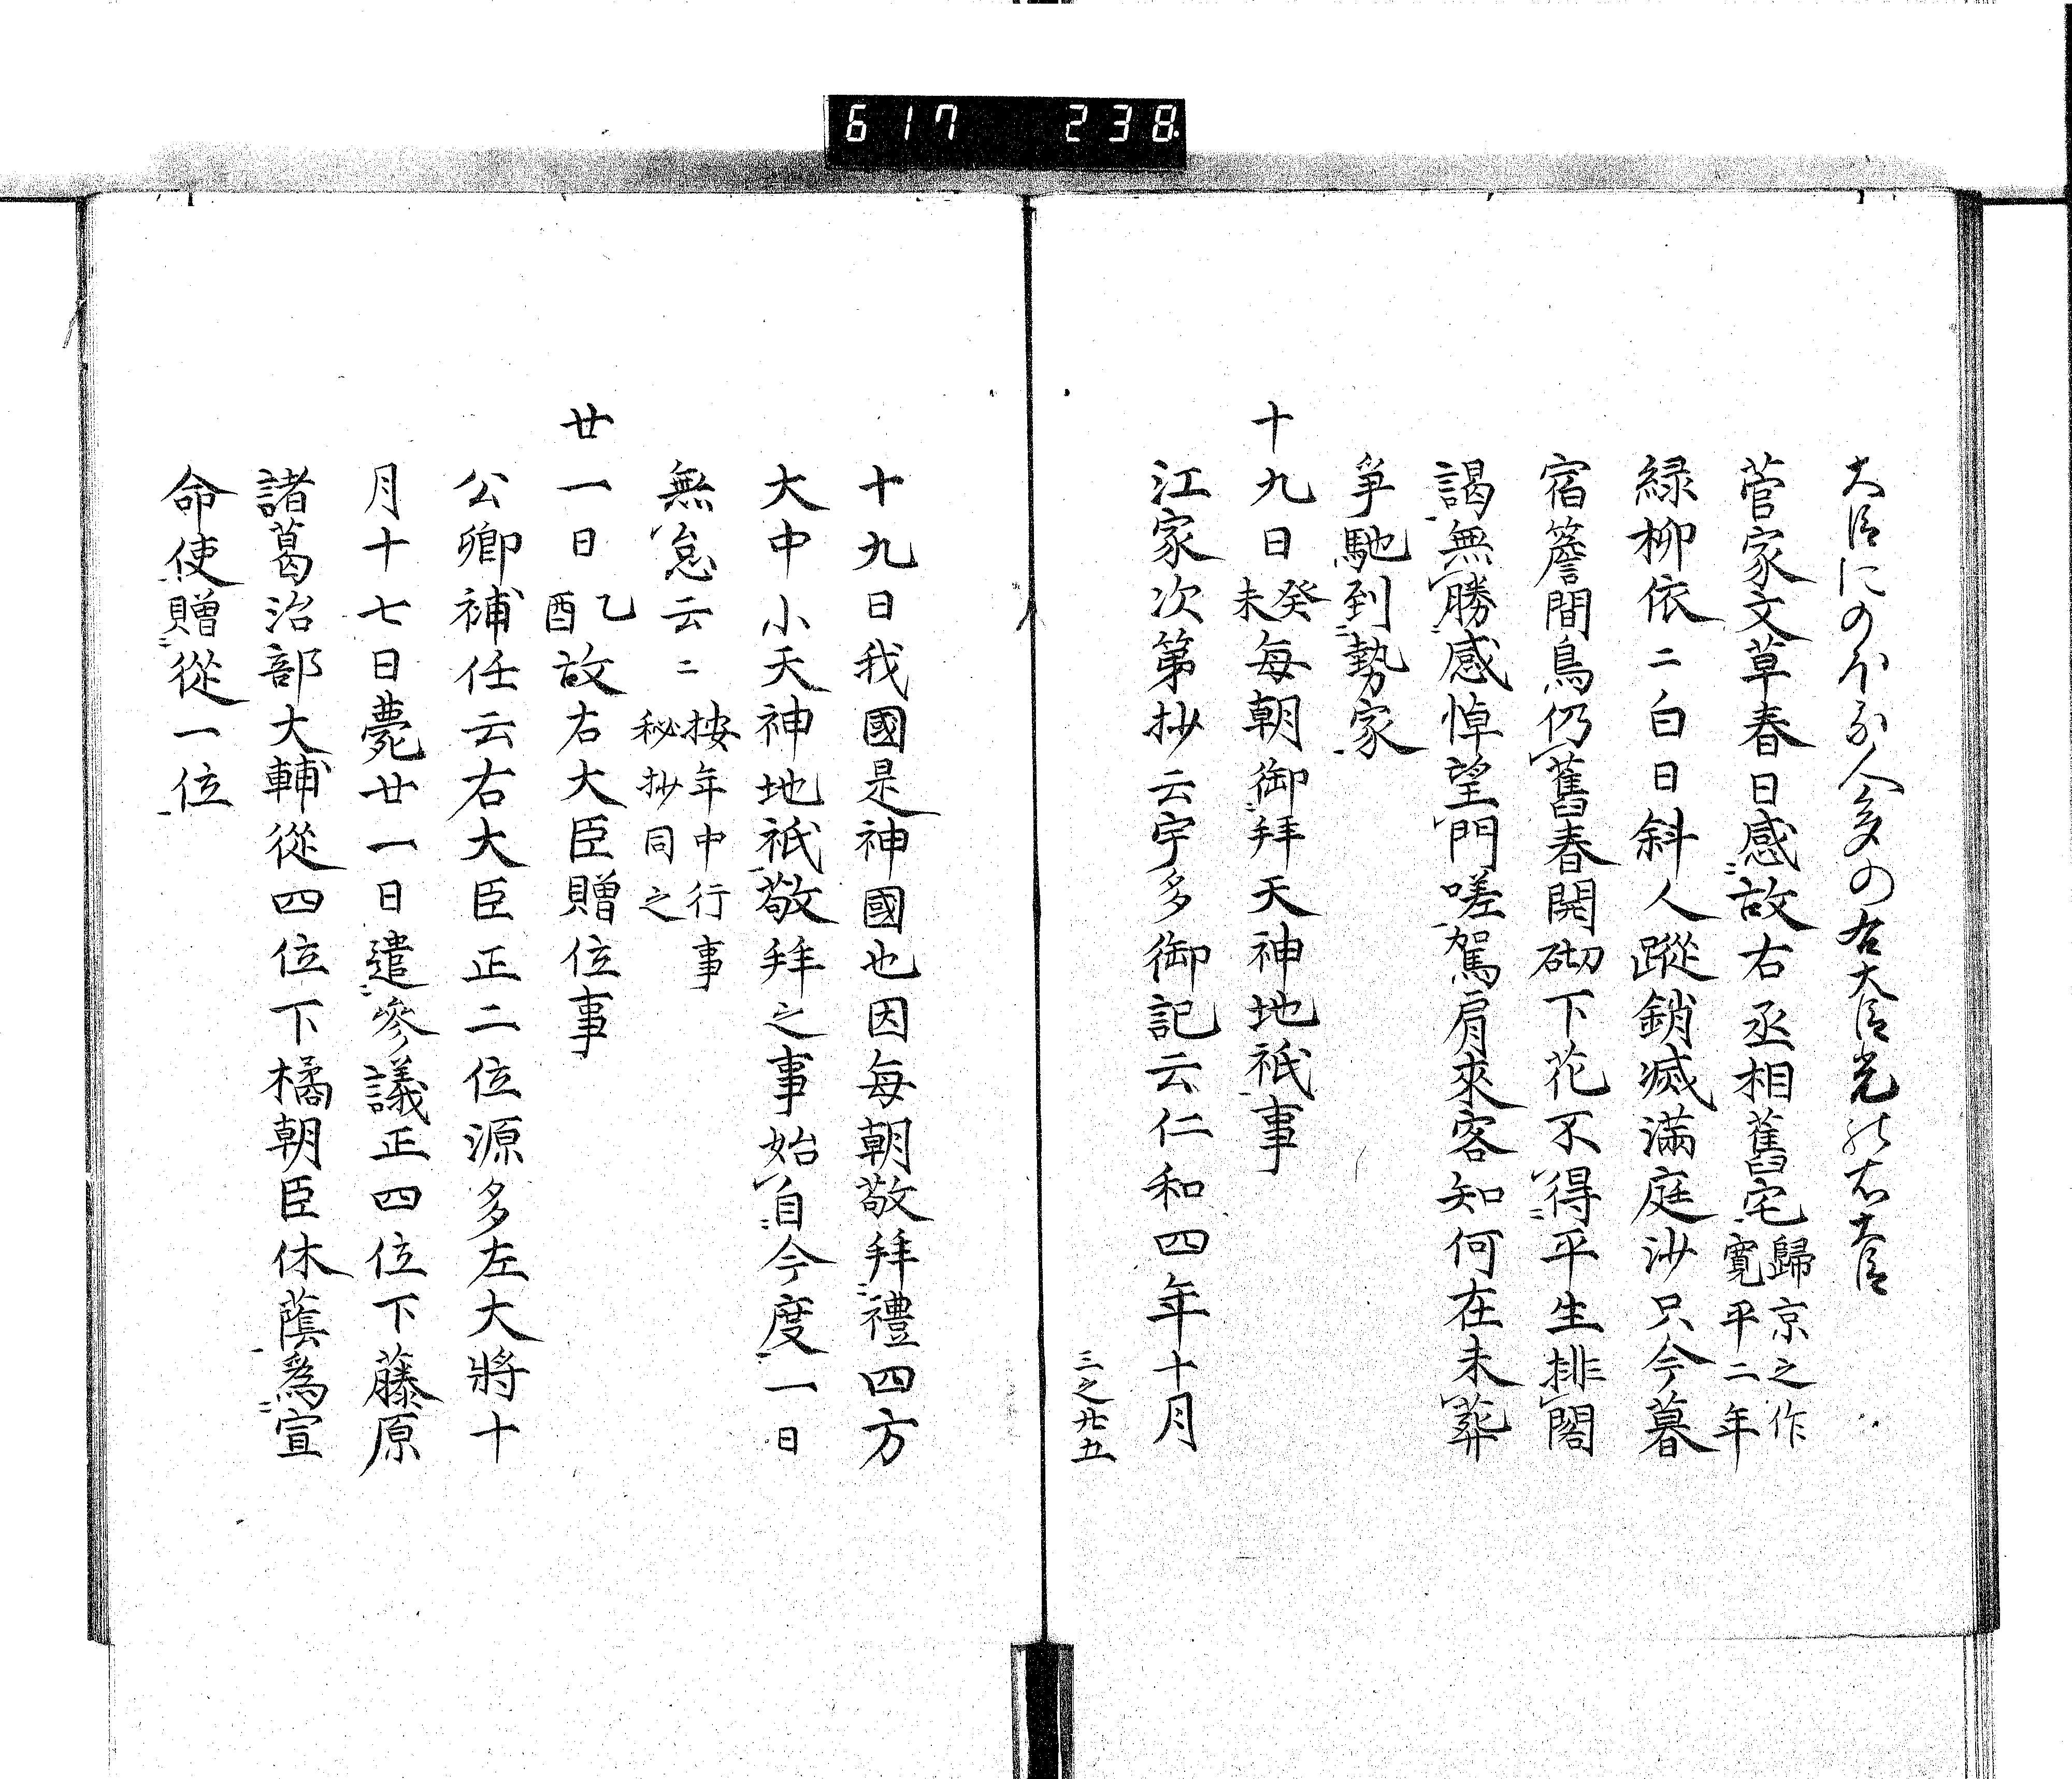 617 238
大臣にのほる人多の右大臣光は右大臣
菅家文草春日感故右丞相舊宅歸京之作寛平二年
緑柳依〻白日斜人蹤銷滅滿庭沙只今暮
宿簷間鳥仍舊春開砌下花不得平生排閤
謁無勝感悼望門嗟駕肩來客知何在未葬
爭馳到勢家
十九日癸未每朝御拜天神地祇事
江家次第抄云宇多御記云仁和四年十月
三之廿五
十九日我國是神國也因每朝敬拜禮四方
大中小天神地祇敬拜之事始自今度一日
無怠云〻按年中行事秘抄同之
廿一日乙酉故右大臣贈位事
公卿補任云右大臣正二位源多左大將十
月十七日薨廿一日遣參議正四位下藤原
諸葛治部大輔從四位下橘朝臣休蔭爲宣
命使贈從一位